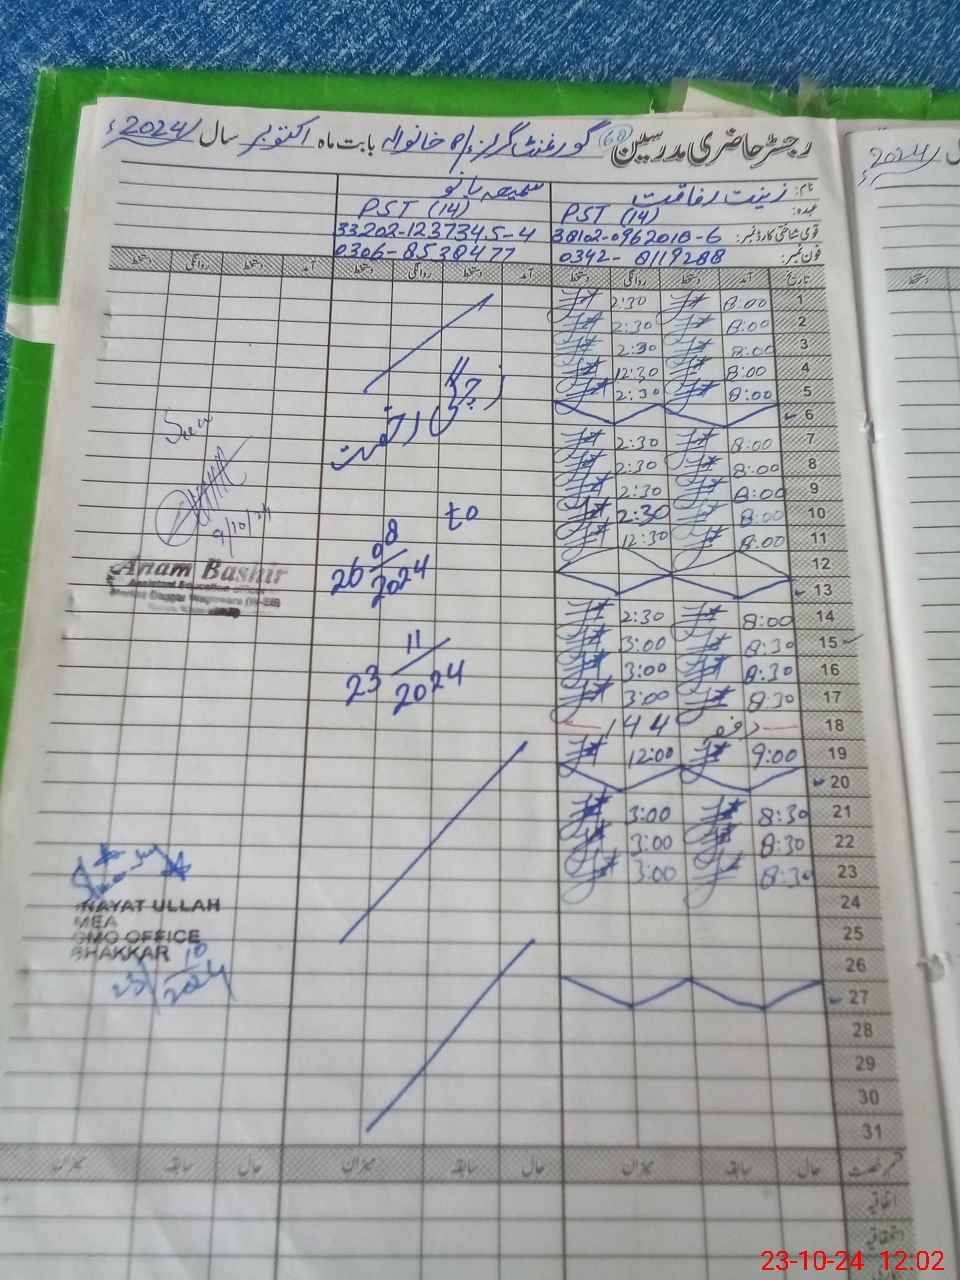 رجسٹر حاضری مدرسین گورنمنٹ گرلز پ/س خانوالہ بابت ماہ اکتوبر سال 2024ء
2024ء
نام: زینت رفاقت سمیعہ بانو
عہدہ: PST (14) PST (14)
قومی شناختی کارڈ نمبر: 38102-0962018-6 33202-1237345-4
فون نمبر: 0342-8119288 0306-8538477
تاریخ آمد دستخط روانگی دستخط آمد دستخط روانگی دستخط آمد دستخط روانگی دستخط
1 8:00 2:30
2 8:00 2:30
3 8:00 2:30
4 8:00 12:30
5 8:00 2:30
6
7 8:00 2:30
8 8:00 2:30
9 8:00 2:30
10 8:00 2:30
11 8:00 12:30
12
13
14 8:00 2:30
15 8:30 3:00
16 8:30 3:00
17 8:30 3:00
18 دفعہ 144
19 9:00 12:00
20
21 8:30 3:00
22 8:30 3:00
23 8:30 3:00
24
25
26
27
28
29
30
31
زچگی رخصت
26/08/2024 to
23/11/2024
Seen
9/10/24
Anam Bashir
Assistant Education Officer
INAYAT ULLAH
MEA
DMO OFFICE
BHAKKAR
23/10/2024
قسم رخصت حال سابقہ میزان حال سابقہ میزان حال سابقہ میزان
اتفاقیہ
استحقاقیہ
23-10-24 12:02